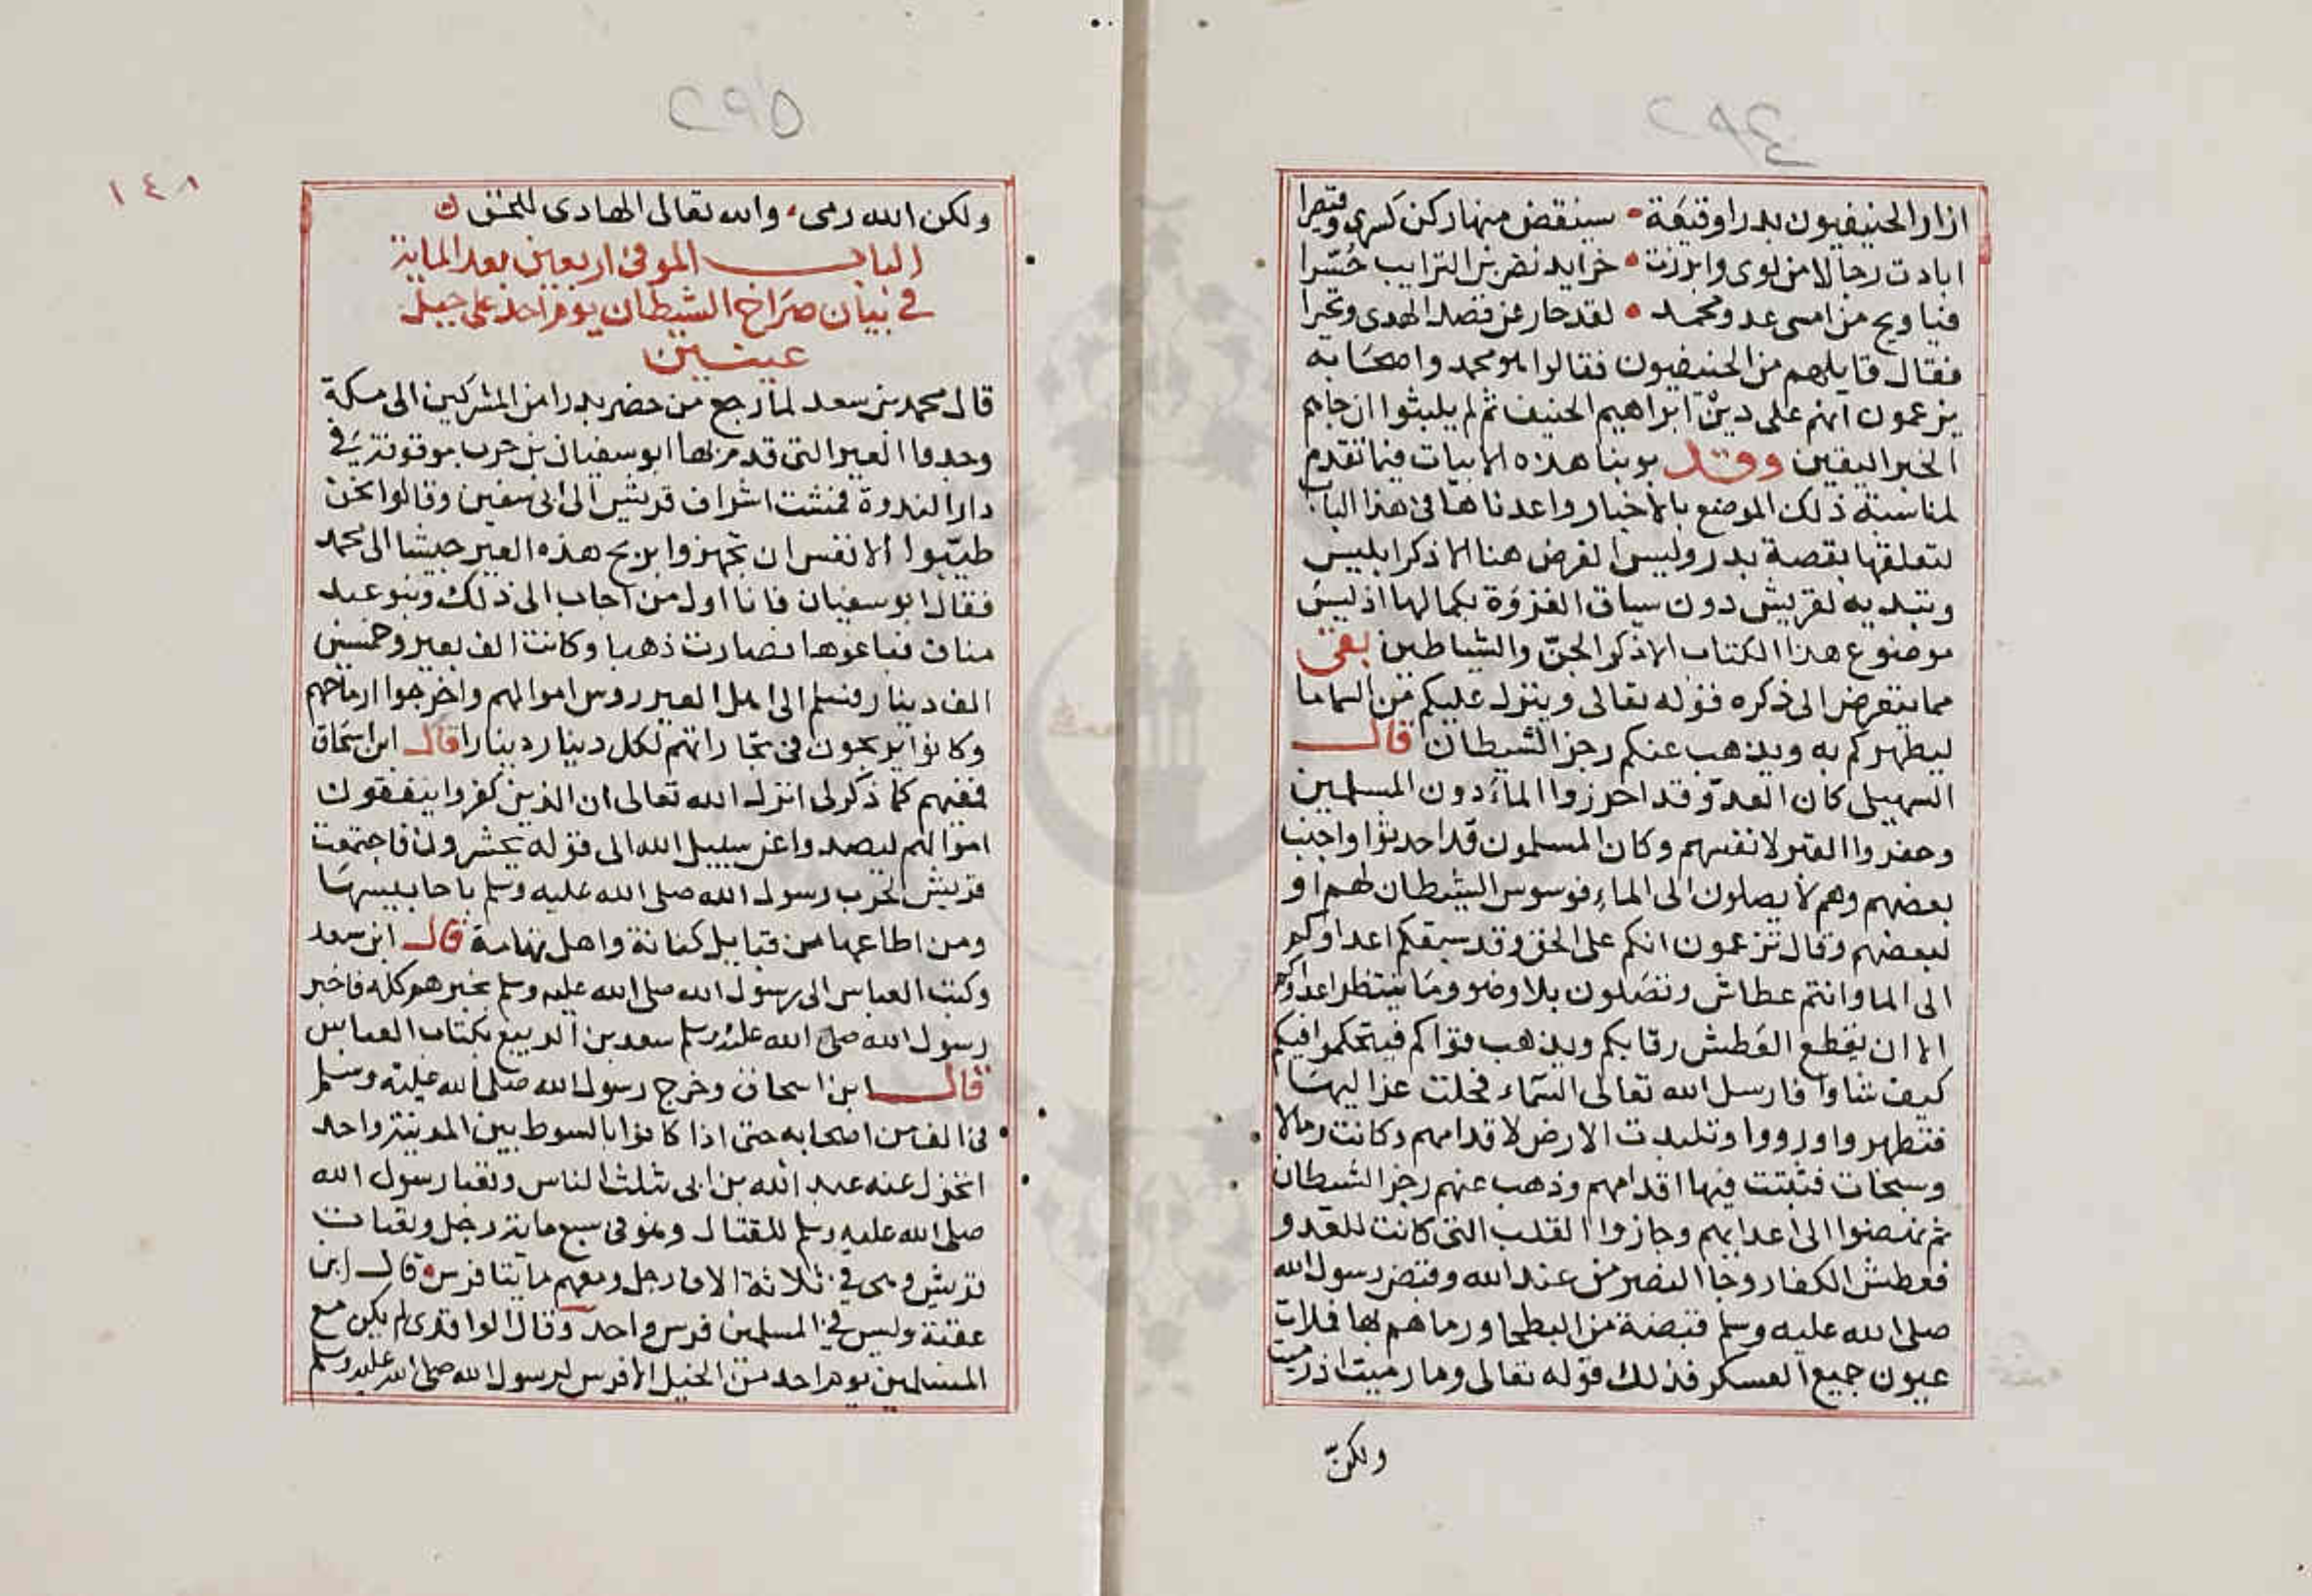 ازار الحنيفيون بدرا وقيعة • سينقض منها ركن كسرى وقيصرا
ابادت رجالا من لوى وابرزت • خرايد يضربن الترايب حسرا
فيا ويح من امسى عدو محمد • لقد حار عن قصد الهدى وتحيرا
فقال قايلهم من الحنيفيون فقالوا هو محمد واصحابه
يزعمون انهم على دين ابراهيم الحنيف ثم لم يلبثوا ان جاهم
الخبر اليقين وقد بوبنا هذه الابيات فيما تقدم
لمناسبة ذلك الموضع بالاخبار واعدناها فى هذا الباب
لتعلقها بقصة بدر وليس الغرض هنا الا ذكر ابليس
وتبديه لقريش دون سياق الغزوة بكمالها اذ ليس
موضوع هذا الكتاب الا ذكر الجن والشياطين بقى
مما يتعرض الى ذكره قوله تعالى وينزل عليكم من السما ما
ليطهركم به ويذهب عنكم رجز الشيطان قال
السهيلى كان العدو قد احرزوا الماء دون المسلمين
وحفروا القلب لانفسهم وكان المسلمون قد احدثوا واجنب
بعضهم وهم لا يصلون الى الماء فوسوس الشيطان لهم او
لبعضهم وقال تزعمون انكم على الحق وقد سبقكم اعداوكم
الى الما وانتم عطاش وتصلون بلا وضو وما ينتظر اعداوكم
الا ان يقطع العطش رقابكم ويذهب قواكم فيتحكموا فيكم
كيف شاوا فارسل الله تعالى السماء فحلت عزاليها
فتطهروا ورووا وتلبدت الارض لاقدامهم وكانت رمالا
وسبخات فثبتت فيها اقدامهم وذهب عنهم رجز الشيطان
ثم نهضوا الى اعدايهم وحازوا القلب التى كانت للعدو
فعطش الكفار وجا النصر من عند الله وقبض رسول الله
صلى الله عليه وسلم قبضة من البطحا ورماهم بها فملات
عيون جميع العسكر فذلك قوله تعالى وما رميت اذ رميت
ولكن
١٤٨
ولكن الله رمى • والله تعالى الهادى للحق
الباب الموفى اربعين بعد الماية
فى بيان صراخ الشيطان يوم احد على جبل
عينين
قال محمد بن سعد لما رجع من حضر بدرا من المشركين الى مكة
وجدوا العير التى قدم بها ابو سفيان بن حرب موقوفة فى
دار الندوة فمشت اشراف قريش الى ابى سفين وقالوا نحن
طيبوا الانفس ان تجهزوا بربح هذه العير جيشا الى محمد
فقال ابو سفيان فانا اول من اجاب الى ذلك وبنو عبد
مناف فباعوها فصارت ذهبا وكانت الف بعير وخمسين
الف دينار فسلم الى اهل العير روس اموالهم واخرجوا ارباحهم
وكانوا يربحون فى تجاراتهم لكل دينار دينارا قال ابن اسحاق
ففيهم كما ذكر لى انزل الله تعالى ان الذين كفروا ينفقون
اموالهم ليصدوا عن سبيل الله الى قوله يحشرون فاجتمعت
قريش لحرب رسول الله صلى الله عليه وسلم باحابيسها
ومن اطاعها من قبايل كنانة واهل تهامة قال ابن سعد
وكتب العباس الى رسول الله صلى الله عليه وسلم بخبرهم كله فاخبر
رسول الله صلى الله عليه وسلم سعد بن الربيع بكتاب العباس
قال ابن اسحاق وخرج رسول الله صلى الله عليه وسلم
فى الف من اصحابه حتى اذا كانوا بالسوط بين المدينة واحد
انخزل عنه عبد الله بن ابى بثلث الناس وتعبا رسول الله
صلى الله عليه وسلم للقتال وهو فى سبع ماية رجل وتعبات
قريش وهى فى ثلاثة الاف رجل ومعهم مايتا فرس • قال ابن
عقبة وليس فى المسلمين فرس واحد وقال الواقدى لم يكن مع
المسلمين يوم احد من الخيل الا فرس لرسول الله صلى الله عليه وسلم